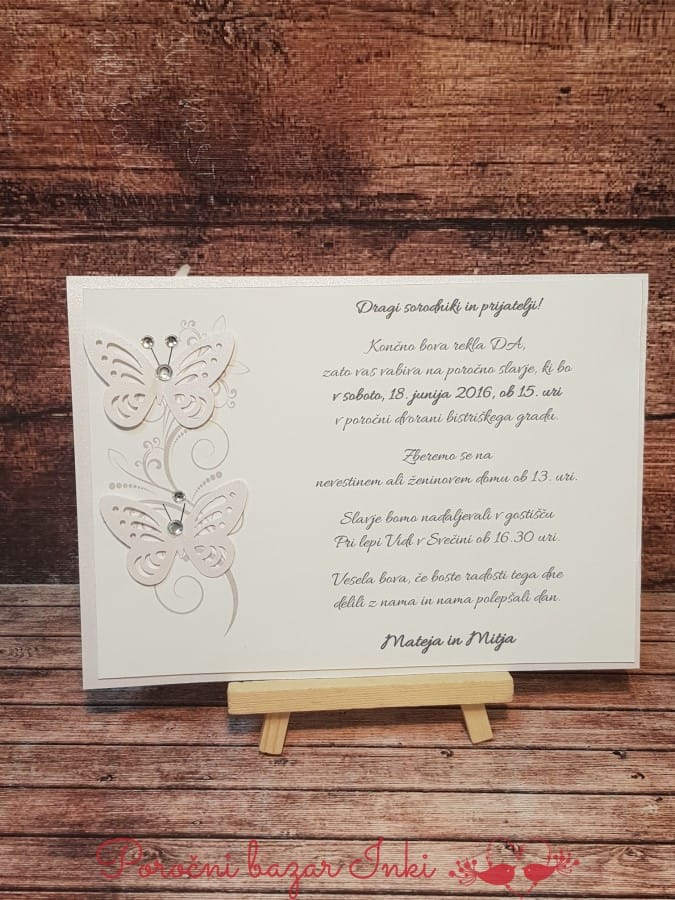 Dragi sorodniki in prijatelji!
Končno bova rekla DA,
zato vas vabiva na poročno slavje, ki bo
v soboto, 18. junija 2016, ob 15. uri
v poročni dvorani bistriškega gradu.
Zberemo se na
nevestinem ali ženinovem domu ob 13. uri.
Slavje bomo nadaljevali v gostišču
Pri lepi Vidi v Svečini ob 16.30 uri.
Vesela bova, če boste radosti tega dne
delili z nama in nama polepšali dan.
Mateja in Mitja
Poročni bazar Inki